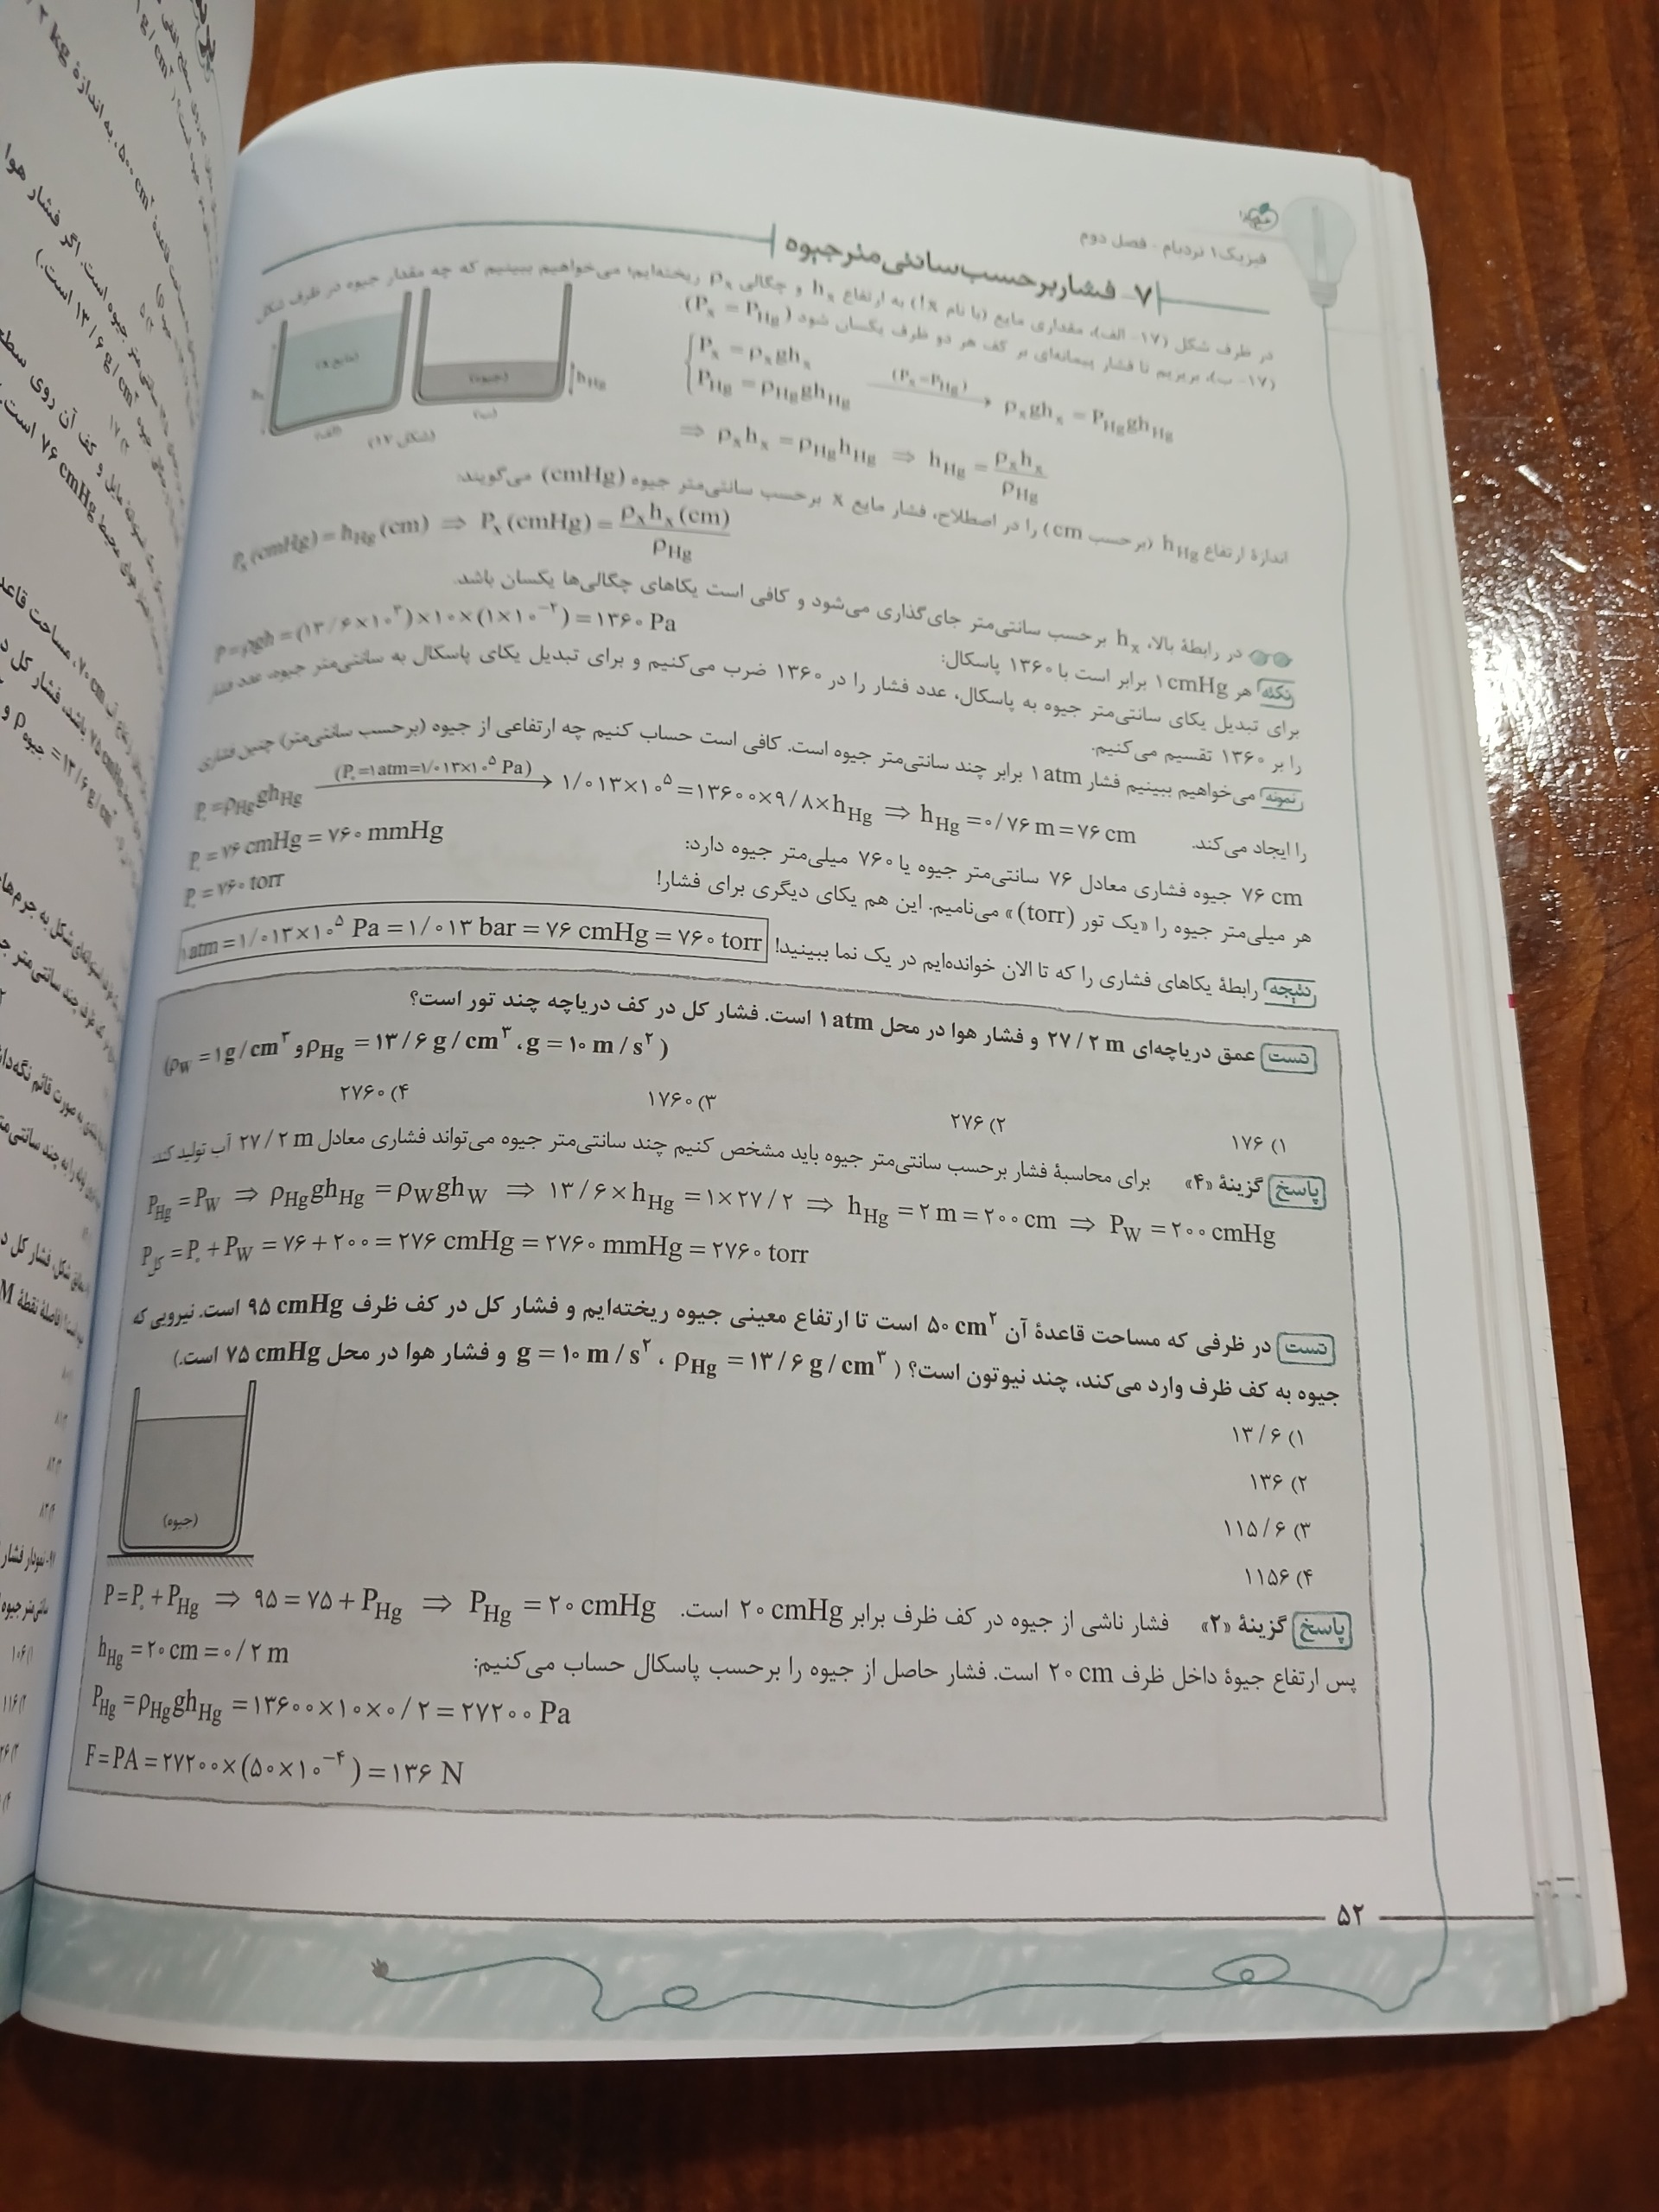 فیزیک ۱ نردبام - فصل دوم
۷- فشار برحسب سانتی‌متر جیوه
در ظرف شکل (۱۷- الف)، مقداری مایع (با نام x!) به ارتفاع hₓ و چگالی ρₓ ریخته‌ایم؛ می‌خواهیم ببینیم که چه مقدار جیوه در ظرف شکل
(۱۷- ب)، بریزیم تا فشار پیمانه‌ای بر کف هر دو ظرف یکسان شود (Pₓ = P_Hg).
Pₓ = ρₓghₓ
P_Hg = ρ_Hg gh_Hg (Pₓ=P_Hg) → ρₓghₓ = P_Hg gh_Hg
⇒ ρₓhₓ = ρ_Hg h_Hg ⇒ h_Hg = ρₓhₓ / ρ_Hg
(مایع x)
(جیوه)
h_Hg
(الف)
(ب)
(شکل ۱۷)
اندازهٔ ارتفاع h_Hg (برحسب cm) را در اصطلاح، فشار مایع x برحسب سانتی‌متر جیوه (cmHg) می‌گویند:
Pₓ(cmHg) = h_Hg(cm) ⇒ Pₓ(cmHg) = ρₓhₓ(cm) / ρ_Hg
در رابطهٔ بالا، hₓ برحسب سانتی‌متر جای‌گذاری می‌شود و کافی است یکاهای چگالی‌ها یکسان باشد.
نکته هر ۱cmHg برابر است با ۱۳۶۰ پاسکال:
P = ρgh = (۱۳/۶×۱۰³)×۱۰×(۱×۱۰⁻²) = ۱۳۶۰ Pa
برای تبدیل یکای سانتی‌متر جیوه به پاسکال، عدد فشار را در ۱۳۶۰ ضرب می‌کنیم و برای تبدیل یکای پاسکال به سانتی‌متر جیوه، عدد فشار
را بر ۱۳۶۰ تقسیم می‌کنیم.
نمونه می‌خواهیم ببینیم فشار ۱atm برابر چند سانتی‌متر جیوه است. کافی است حساب کنیم چه ارتفاعی از جیوه (برحسب سانتی‌متر) چنین فشاری
را ایجاد می‌کند.
P₀ = ρ_Hg gh_Hg (P₀=۱atm=۱/۰۱۳×۱۰⁵ Pa) → ۱/۰۱۳×۱۰⁵ = ۱۳۶۰۰×۹/۸×h_Hg ⇒ h_Hg = ۰/۷۶ m = ۷۶ cm
۷۶ cm جیوه فشاری معادل ۷۶ سانتی‌متر جیوه یا ۷۶۰ میلی‌متر جیوه دارد:
P₀ = ۷۶ cmHg = ۷۶۰ mmHg
هر میلی‌متر جیوه را «یک تور (torr)» می‌نامیم. این هم یکای دیگری برای فشار!
P₀ = ۷۶۰ torr
نتیجه رابطهٔ یکاهای فشاری را که تا الان خوانده‌ایم در یک نما ببینید!
۱atm = ۱/۰۱۳×۱۰⁵ Pa = ۱/۰۱۳ bar = ۷۶ cmHg = ۷۶۰ torr
تست عمق دریاچه‌ای ۲۷/۲ m و فشار هوا در محل ۱atm است. فشار کل در کف دریاچه چند تور است؟
(ρ_W = ۱g/cm³ و ρ_Hg = ۱۳/۶ g/cm³ ، g = ۱۰ m/s²)
۱) ۱۷۶
۲) ۲۷۶
۳) ۱۷۶۰
۴) ۲۷۶۰
پاسخ گزینهٔ «۴» برای محاسبهٔ فشار برحسب سانتی‌متر جیوه باید مشخص کنیم چند سانتی‌متر جیوه می‌تواند فشاری معادل ۲۷/۲ m آب تولید کند:
P_Hg = P_W ⇒ ρ_Hg gh_Hg = ρ_W gh_W ⇒ ۱۳/۶×h_Hg = ۱×۲۷/۲ ⇒ h_Hg = ۲ m = ۲۰۰ cm ⇒ P_W = ۲۰۰ cmHg
P_کل = P₀ + P_W = ۷۶ + ۲۰۰ = ۲۷۶ cmHg = ۲۷۶۰ mmHg = ۲۷۶۰ torr
تست در ظرفی که مساحت قاعدهٔ آن ۵۰ cm² است تا ارتفاع معینی جیوه ریخته‌ایم و فشار کل در کف ظرف ۹۵ cmHg است. نیرویی که
جیوه به کف ظرف وارد می‌کند، چند نیوتون است؟ (ρ_Hg = ۱۳/۶ g/cm³ ، g = ۱۰ m/s² و فشار هوا در محل ۷۵ cmHg است.)
۱) ۱۳/۶
۲) ۱۳۶
۳) ۱۱۵/۶
۴) ۱۱۵۶
(جیوه)
پاسخ گزینهٔ «۲» فشار ناشی از جیوه در کف ظرف برابر ۲۰ cmHg است.
P = P₀ + P_Hg ⇒ ۹۵ = ۷۵ + P_Hg ⇒ P_Hg = ۲۰ cmHg
پس ارتفاع جیوهٔ داخل ظرف ۲۰ cm است. فشار حاصل از جیوه را برحسب پاسکال حساب می‌کنیم:
h_Hg = ۲۰ cm = ۰/۲ m
P_Hg = ρ_Hg gh_Hg = ۱۳۶۰۰×۱۰×۰/۲ = ۲۷۲۰۰ Pa
F = PA = ۲۷۲۰۰×(۵۰×۱۰⁻⁴) = ۱۳۶ N
۵۲